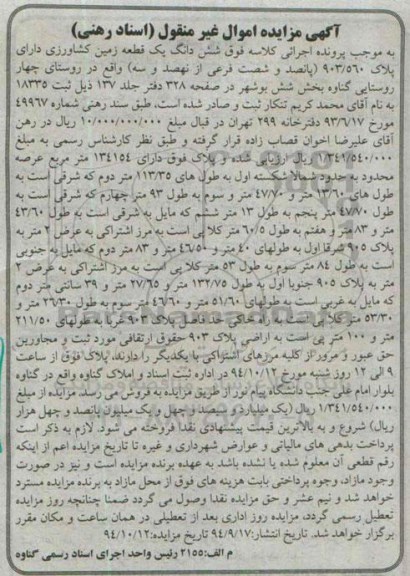 آگهی مزایده اموال غیر منقول (اسناد رهنی)
به موجب پرونده اجرائی کلاسه فوق شش دانگ یک قطعه زمین کشاورزی دارای
پلاک ۹۰۳/۵۶۰ (پانصد و شصت فرعی از نهصد و سه) واقع در روستای چهار
روستایی گناوه بخش شش بوشهر در صفحه ۳۲۸ دفتر جلد ۱۳۷ ذیل ثبت ۱۸۳۳۵
به نام آقای محمد کریم تنکار ثبت و صادر شده است، طبق سند رهنی شماره ۴۹۹۶۷
مورخ ۹۳/۶/۱۷ دفترخانه ۲۹۹ تهران در قبال مبلغ ۱۰/۰۰۰/۰۰۰/۰۰۰ ریال در رهن
آقای علیرضا اخوان قصاب زاده قرار گرفته و طبق نظر کارشناس رسمی به مبلغ
۱/۳۴۱/۵۴۰/۰۰۰ ریال ارزیابی شده و پلاک فوق دارای ۱۳۴۱۵۴ متر مربع عرصه
محدود به حدود شمالا شکسته اول به طول های ۱۱۳/۳۵ متر دوم که شرقی است به
طول های ۱۳/۶۰ متر و ۴۷/۷۰ متر و سوم به طول ۹۳ متر چهارم که شرقی است به
طول ۴۷/۷۰ متر پنجم به طول ۱۳ متر ششم که مایل به شرقی است به طول ۴۳/۶۰
متر و ۸۳ متر و هفتم به طول ۶۰/۵ متر کلا پی است به مرز اشتراکی به عرض ۲ متر به
پلاک ۹۰۵ شرقا اول به طولهای ۴۰ متر و ۴۶/۵۰ متر و ۸۳ متر دوم که مایل به جنوبی
است به طول ۸۴ متر سوم به طول ۵۳ متر کلا پی است به مرز اشتراکی به عرض ۲
متر به پلاک ۹۰۵ جنوبا اول به طول ۱۳۲/۷۵ متر و ۲۷/۶۵ متر و ۳۹ سانتی متر دوم
که مایل به غربی است به طولهای ۵۱/۶۰ متر و ۴۶/۶۰ متر سوم به طول ۲۶/۳۰ متر و
۵۳/۳۰ متر کلا پی است به راه خاکی حد فاصل پلاک ۹۰۳ غربا به طولهای ۲۱۱/۵۰
متر و ۱۰۰ متر پی است به اراضی پلاک ۹۰۳ حقوق ارتفاقی مورد ثبت و مجاورین
حق عبور و مرور از کلیه مرزهای اشتراکی با یکدیگر را دارند، پلاک فوق از ساعت
۹ الی ۱۲ روز شنبه مورخ ۹۴/۱۰/۱۲ در اداره ثبت اسناد و املاک گناوه واقع در گناوه
بلوار امام علی جنب دانشگاه پیام نور از طریق مزایده به فروش می رسد. مزایده از مبلغ
۱/۳۴۱/۵۴۰/۰۰۰ ریال (یک میلیارد و سیصد و چهل و یک میلیون پانصد و چهل هزار
ریال) شروع و به بالاترین قیمت پیشنهادی نقدا فروخته می شود. لازم به ذکر است
پرداخت بدهی های مالیاتی و عوارض شهرداری و غیره تا تاریخ مزایده اعم از اینکه
رقم قطعی آن معلوم شده یا نشده باشد به عهده برنده مزایده است و نیز در صورت
وجود مازاد، وجوه پرداختی بابت هزینه های فوق از محل مازاد به برنده مزایده مسترد
خواهد شد و نیم عشر و حق مزایده نقدا وصول می گردد ضمنا چنانچه روز مزایده
تعطیل رسمی گردد، مزایده روز اداری بعد از تعطیلی در همان ساعت و مکان مقرر
برگزار خواهد شد. تاریخ انتشار: ۹۴/۹/۱۷ تاریخ مزایده: ۹۴/۱۰/۱۲
م الف: ۲۱۵۵ رئیس واحد اجرای اسناد رسمی گناوه